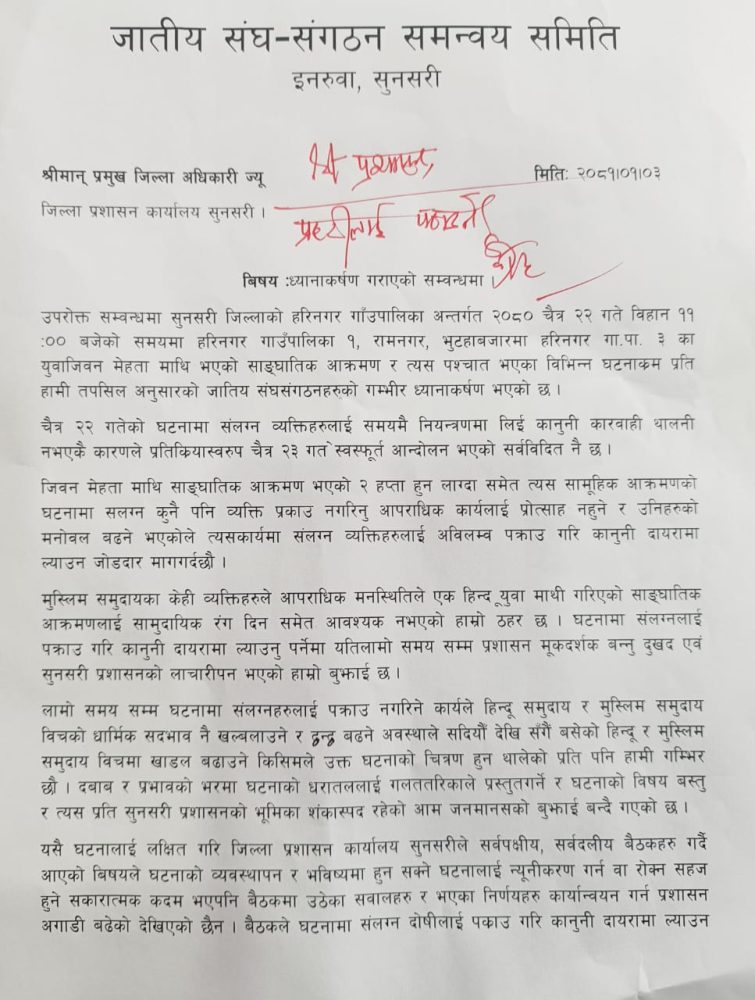 जातीय संघ-संगठन समन्वय समिति
इनरुवा, सुनसरी
श्रीमान् प्रमुख जिल्ला अधिकारी ज्यू
मितिः २०८१।०१।०३
जिल्ला प्रशासन कार्यालय सुनसरी ।
बिषय :ध्यानाकर्षण गराएको सम्वन्धमा ।
उपरोक्त सम्वन्धमा सुनसरी जिल्लाको हरिनगर गाँउपालिका अन्तर्गत २०८० चैत्र २२ गते विहान ११
:०० बजेको समयमा हरिनगर गाउँपालिका १, रामनगर, भुटहाबजारमा हरिनगर गा.पा. ३ का
युवाजिवन मेहता माथि भएको साङ्घातिक आक्रमण र त्यस पश्चात भएका विभिन्न घटनाक्रम प्रति
हामी तपसिल अनुसारको जातिय संघसंगठनहरुको गम्भीर ध्यानाकर्षण भएको छ ।
चैत्र २२ गतेको घटनामा संलग्न व्यक्तिहरुलाई समयमै नियन्त्रणमा लिई कानुनी कारवाही थालनी
नभएकै कारणले प्रतिक्रियास्वरुप चैत्र २३ गते स्वस्फूर्त आन्दोलन भएको सर्वविदित नै छ ।
जिवन मेहता माथि साङ्घातिक आक्रमण भएको २ हप्ता हुन लाग्दा समेत त्यस सामूहिक आक्रमणको
घटनामा सलग्न कुनै पनि व्यक्ति प्रकाउ नगरिनु आपराधिक कार्यलाई प्रोत्साह नहुने र उनिहरुको
मनोवल बढने भएकोले त्यसकार्यमा संलग्न व्यक्तिहरुलाई अविलम्व पक्राउ गरि कानुनी दायरामा
ल्याउन जोडदार मागगर्दछौ ।
मुस्लिम समुदायका केही व्यक्तिहरुले आपराधिक मनस्थितिले एक हिन्दू युवा माथी गरिएको साङ्घातिक
आक्रमणलाई सामुदायिक रंग दिन समेत आवश्यक नभएको हाम्रो ठहर छ । घटनामा संलग्नलाई
पक्राउ गरि कानुनी दायरामा ल्याउनु पर्नेमा यतिलामो समय सम्म प्रशासन मूकदर्शक बन्नु दुखद एवं
सुनसरी प्रशासनको लाचारीपन भएको हाम्रो बुझाई छ ।
लामो समय सम्म घटनामा संलग्नहरुलाई पक्राउ नगरिने कार्यले हिन्दू समुदाय र मुस्लिम समुदाय
विचको धार्मिक सदभाव नै खल्बलाउने र द्वन्द्व बढने अवस्थाले सदियौँ देखि सँगै बसेको हिन्दू र मुस्लिम
समुदाय विचमा खाडल बढाउने किसिमले उक्त घटनाको चित्रण हुन थालेको प्रति पनि हामी गम्भिर
छौ । दबाब र प्रभावको भरमा घटनाको धरातललाई गलततरिकाले प्रस्तुतगर्ने र घटनाको विषय बस्तु
र त्यस प्रति सुनसरी प्रशासनको भूमिका शंकास्पद रहेको आम जनमानसको बुझाई बन्दै गएको छ ।
यसै घटनालाई लक्षित गरि जिल्ला प्रशासन कार्यालय सुनसरीले सर्वपक्षीय, सर्वदलीय बैठकहरु गर्दै
आएको बिषयले घटनाको व्यवस्थापन र भविष्यमा हुन सक्ने घटनालाई न्यूनीकरण गर्न वा रोक्न सहज
हुने सकारात्मक कदम भएपनि बैठकमा उठेका सवालहरु र भएका निर्णयहरु कार्यान्वयन गर्न प्रशासन
अगाडी बढेको देखिएको छैन । बैठकले घटनामा संलग्न दोषीलाई पकाउ गरि कानुनी दायरामा ल्याउन